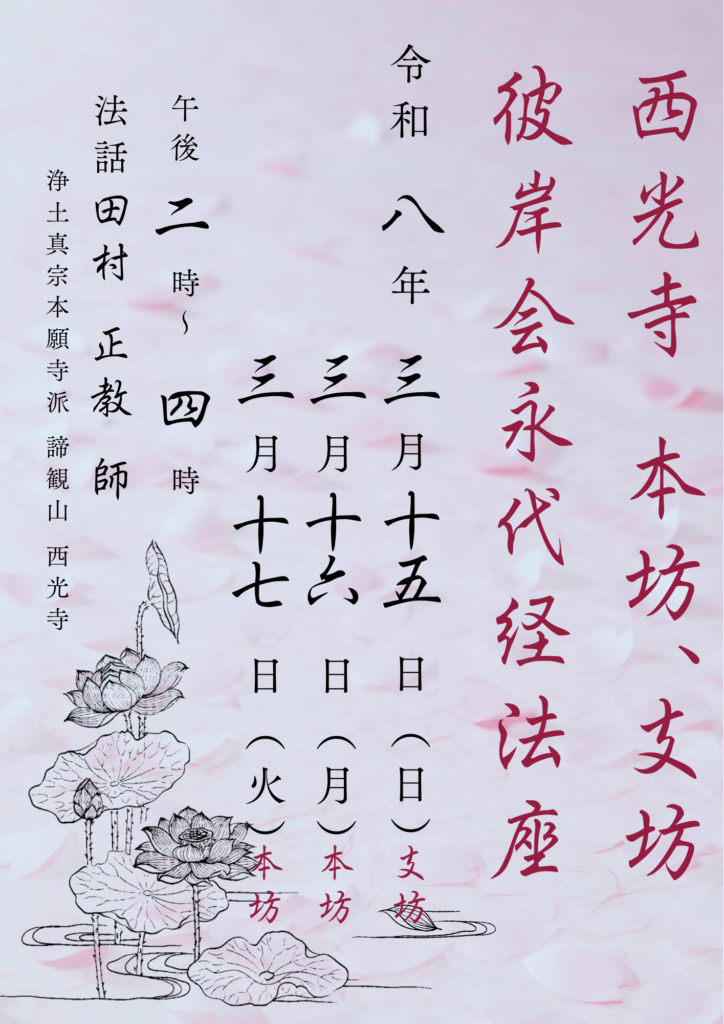 西光寺 本坊、支坊
彼岸会永代経法座
令和 八 年 三月十五日(日)支坊
三月十六日(月)本坊
三月十七日(火)本坊
午後 二 時~ 四 時
法話 田村 正教 師
浄土真宗本願寺派 諦観山 西光寺